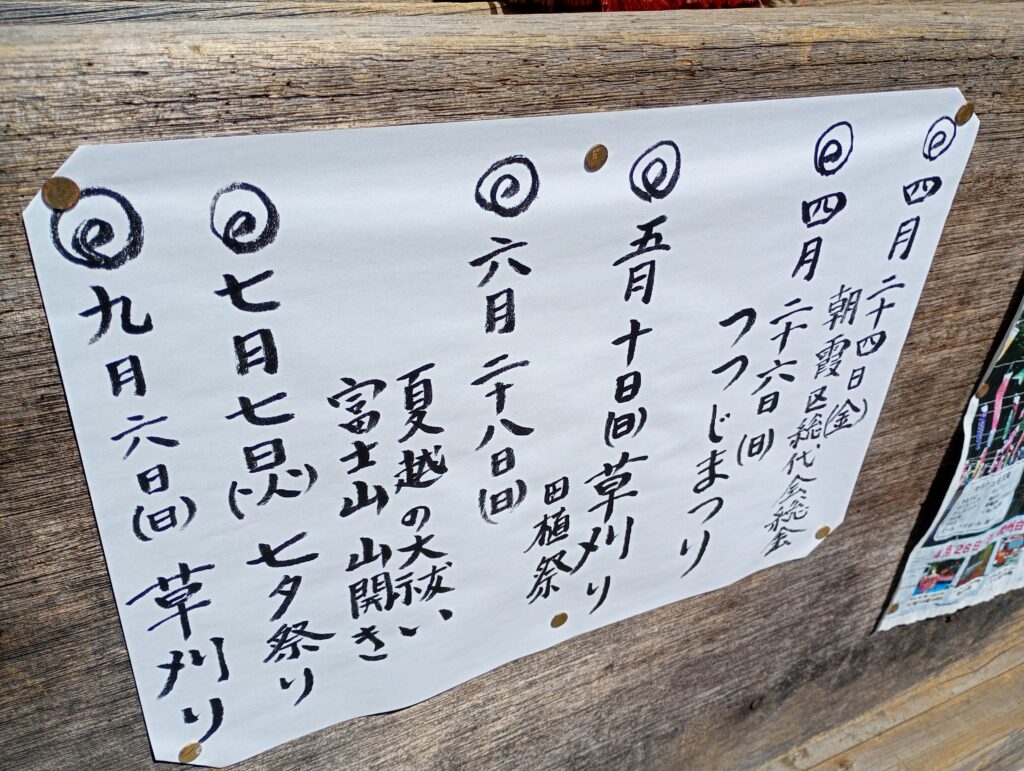 四月二十四日(金)
朝霞区総代会総会
四月二十六日(日)
つつじまつり
五月十日(日)草刈り
田植祭
六月二十八日(日)
夏越の大祓い
富士山 山開き
七月七日(火)七夕祭り
九月六日(日)草刈り
4月26日